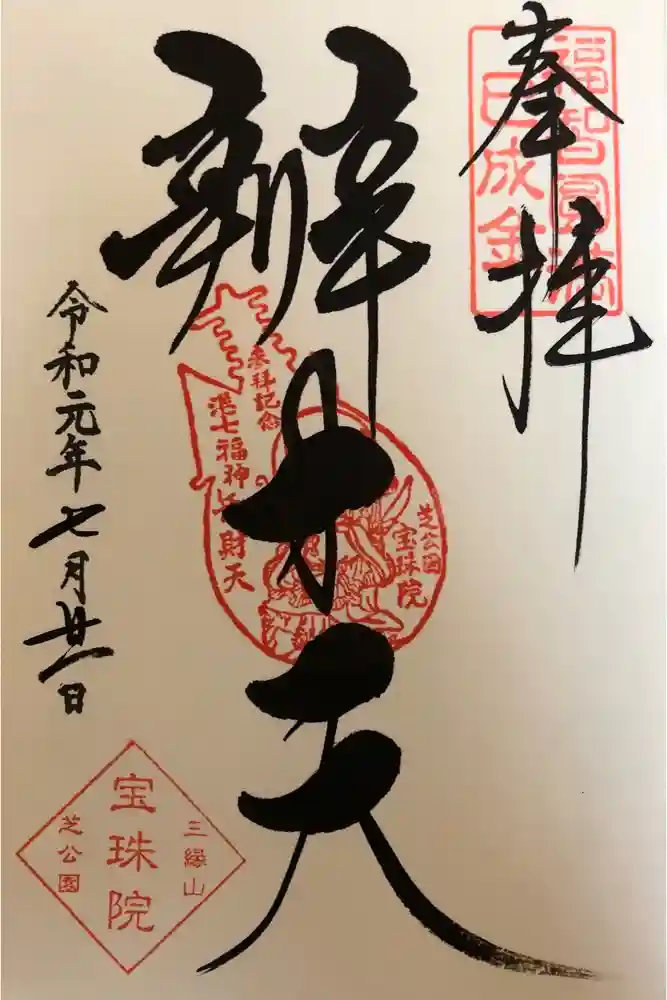 奉拝
福智圓満
巳成金
辨才天
参拝記念
港七福神弁財天
芝公園
宝珠院
令和元年七月廿一日
三縁山
宝珠院
芝公園